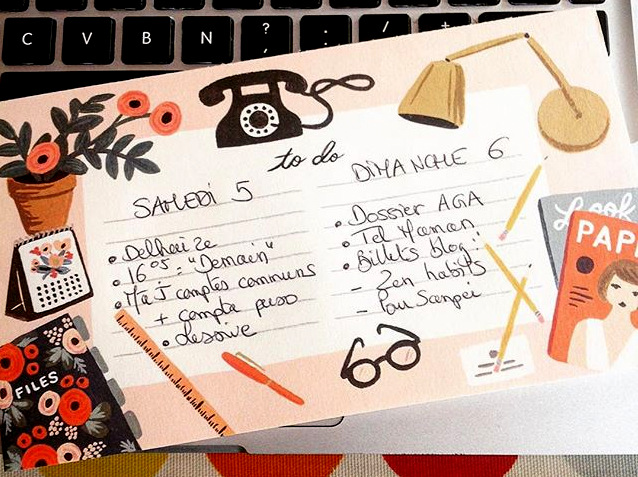 C V B N ? ,
to do
SAMEDI 5
• Delhaize
• 16 05 = "Demain"
• MàJ comptes communs
+ compta perso
• Lessive
DIMANCHE 6
• Dossier AGA
• Tel Maman
• Billets blog :
- Zen habits
- Pou Sampei
FILES
Look
PAP